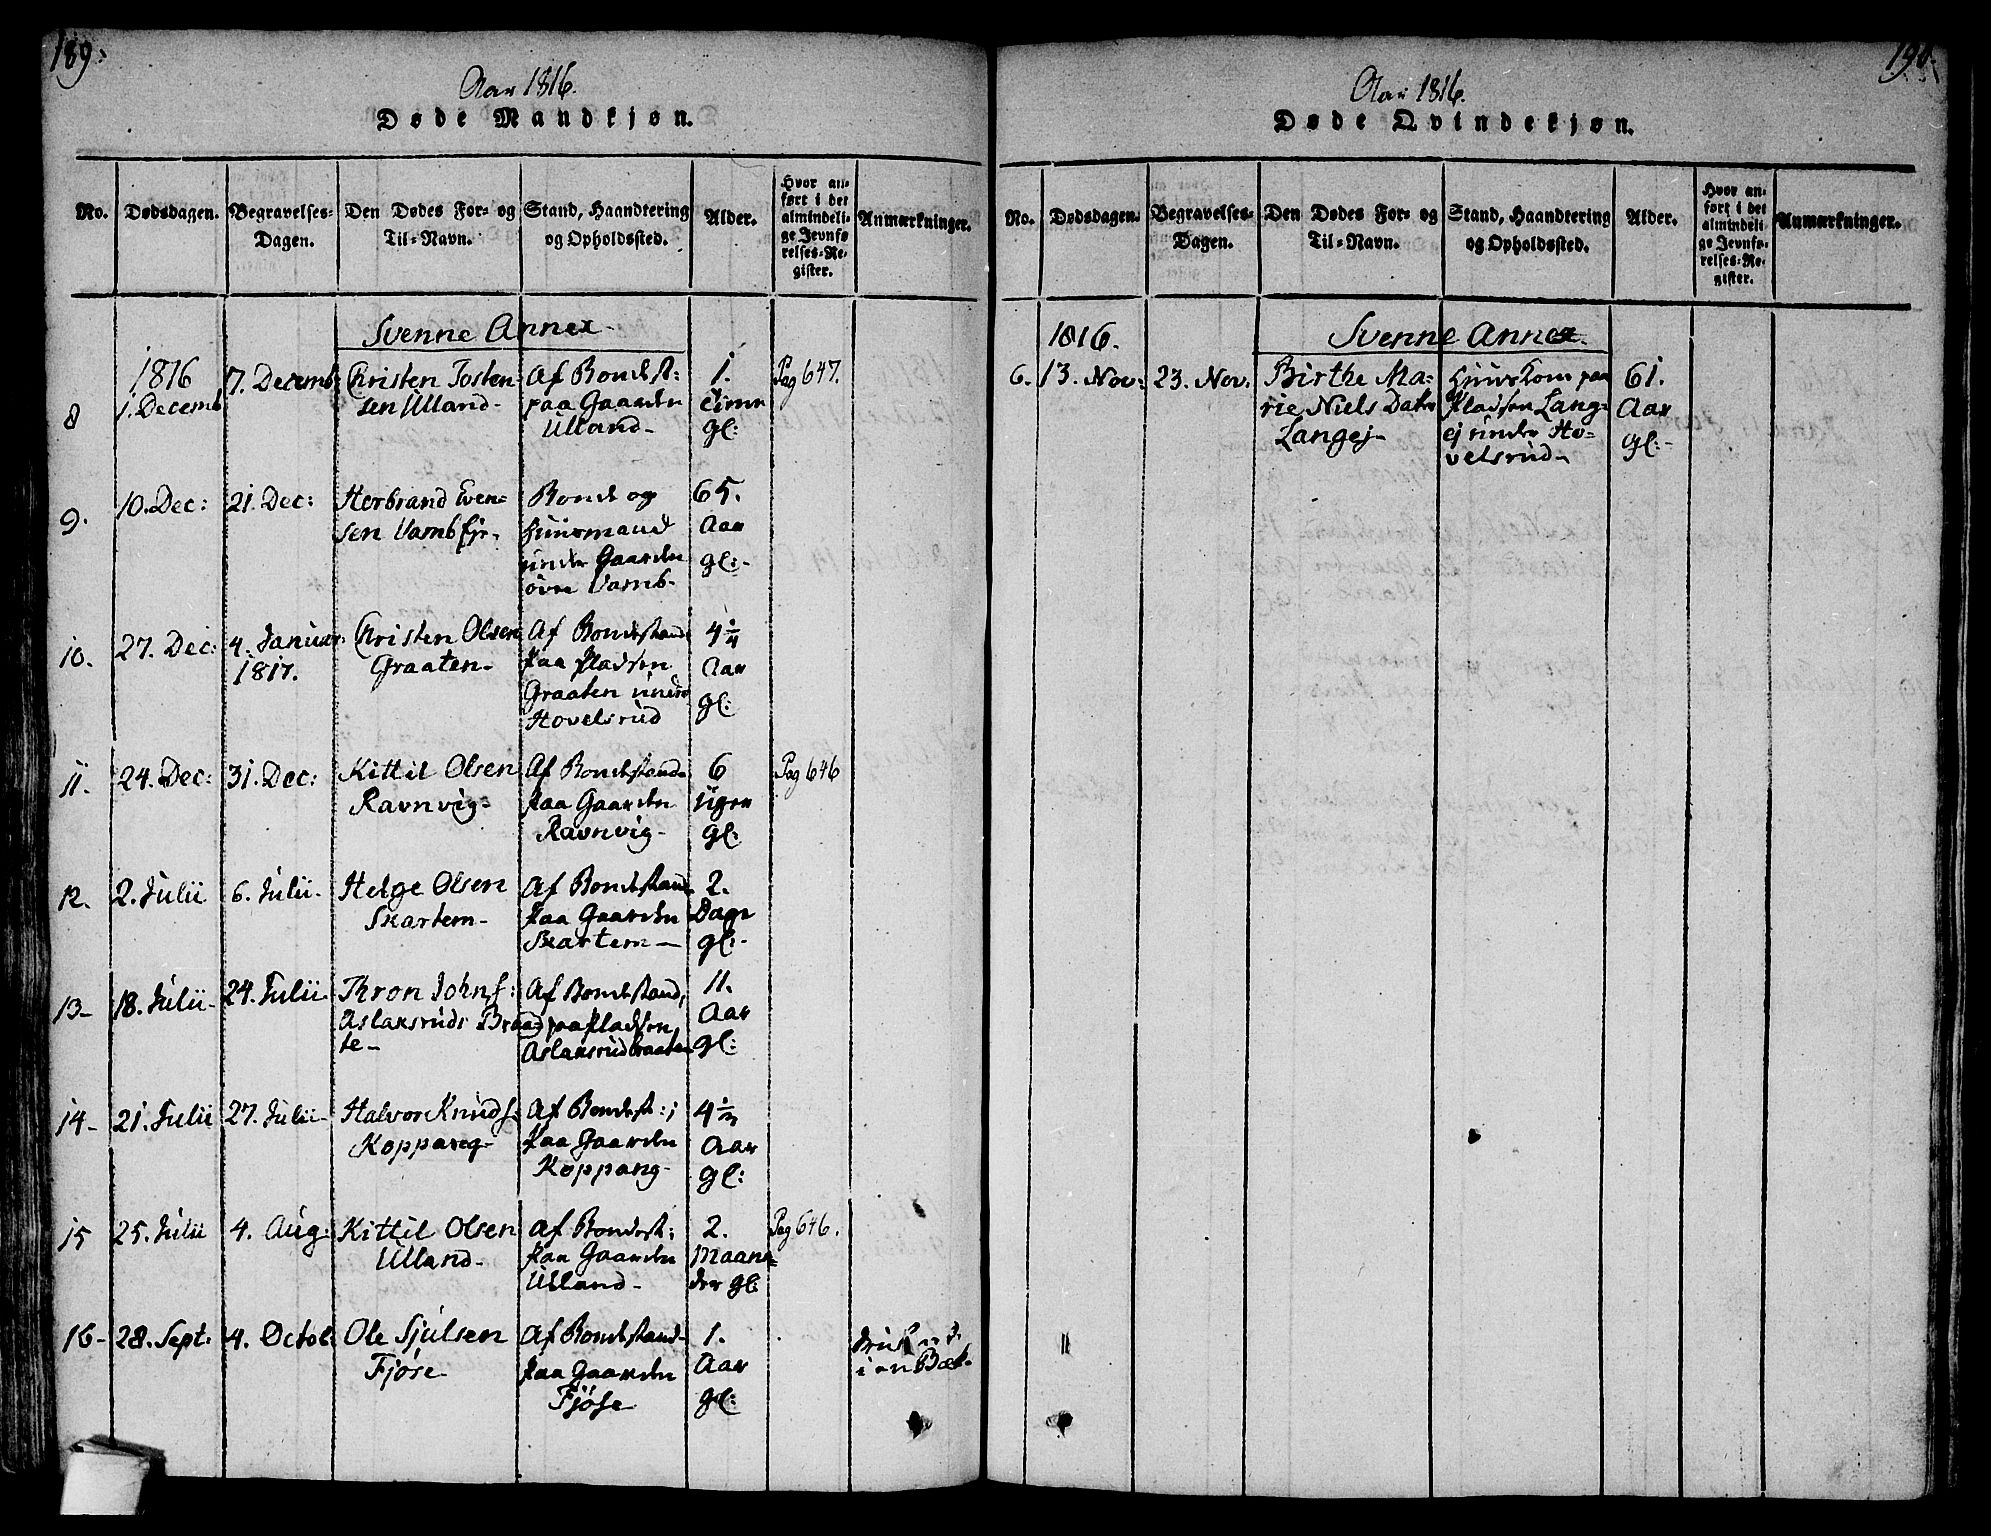 189.
Aar 1816.
Døde Mandkjøn.
No. Dødsdagen. Begravelses-Dagen. Den Dødes For- og Til-Navn. Stand, Haandtering og Opholdssted. Alder. Hvor anført i det almindelige Jevnførelses-Register. Anmærkninger.
Svenne Annex-
1816
8 1. Decemb 7. Decemb: Christen Tosten- Af Bondest: 1. Pag 647.
sen Ulland- paa Gaarden
Ulland- gl:
9. 10. Dec: 21. Dec: Herbrand Even- Bonde og 65.
sen Vambfjr- Huusmand Aar
under Gaarden gl:-
øvre Vamb-
10. 27. Dec: 4. Januar: Christen Olsen Af Bondestand 4 1/4
1817. Graaten- paa Pladsen Aar
Graaten under gl:
Hovelsrud
11. 24. Dec: 31. Dec: Kittil Olsen Af Bondestand 6 Pag 646
Ravnvig- paa Gaarden Uger
Ravnvig- gl:
12. 2. Julii 6. Julii- Helge Olsen Af Bondestand 2.
Skartem- paa Gaarden Dage
Skartem- gl:-
13- 18. Julii- 24. Julii Thron Johns: Af Bondestand, 11.
Aslaksruds Braa- paa Pladsen Aar
te- Aslaksrudbraaten gl:
14- 21. Julii 27. Julii- Halvor Knuds: Af Bondest:; 4 1/2
Koppang- paa Gaarden Aar
Koppang- gl:
15 25. Julii 4. Aug: Kittil Olsen Af Bondest: 2. Pag 646.
Ulland- paa Gaarden Maane-
Ulland- der gl:
16- 28. Sept: 4. Octob: Ole Sjulsen Af Bondestand- 1.
Fjøse- paa Gaarden Aar i en Bæk-
Fjøse gl:
190.
Aar 1816.
Døde Qvindekjøn.
No. Dødsdagen. Begravelses-Dagen. Den Dødes For- og Til-Navn. Stand, Haandtering og Opholdssted. Alder. Hvor anført i det almindelige Jevnførelses-Register. Anmærkninger.
1816. Svenne Annex.
6. 13. Nov: 23. Nov. Birthe Ma- Huuskone paa 61.
rie Niels Dater Pladsen Lang- Aar
Langej- ej under Ho- gl:-
velsrud-